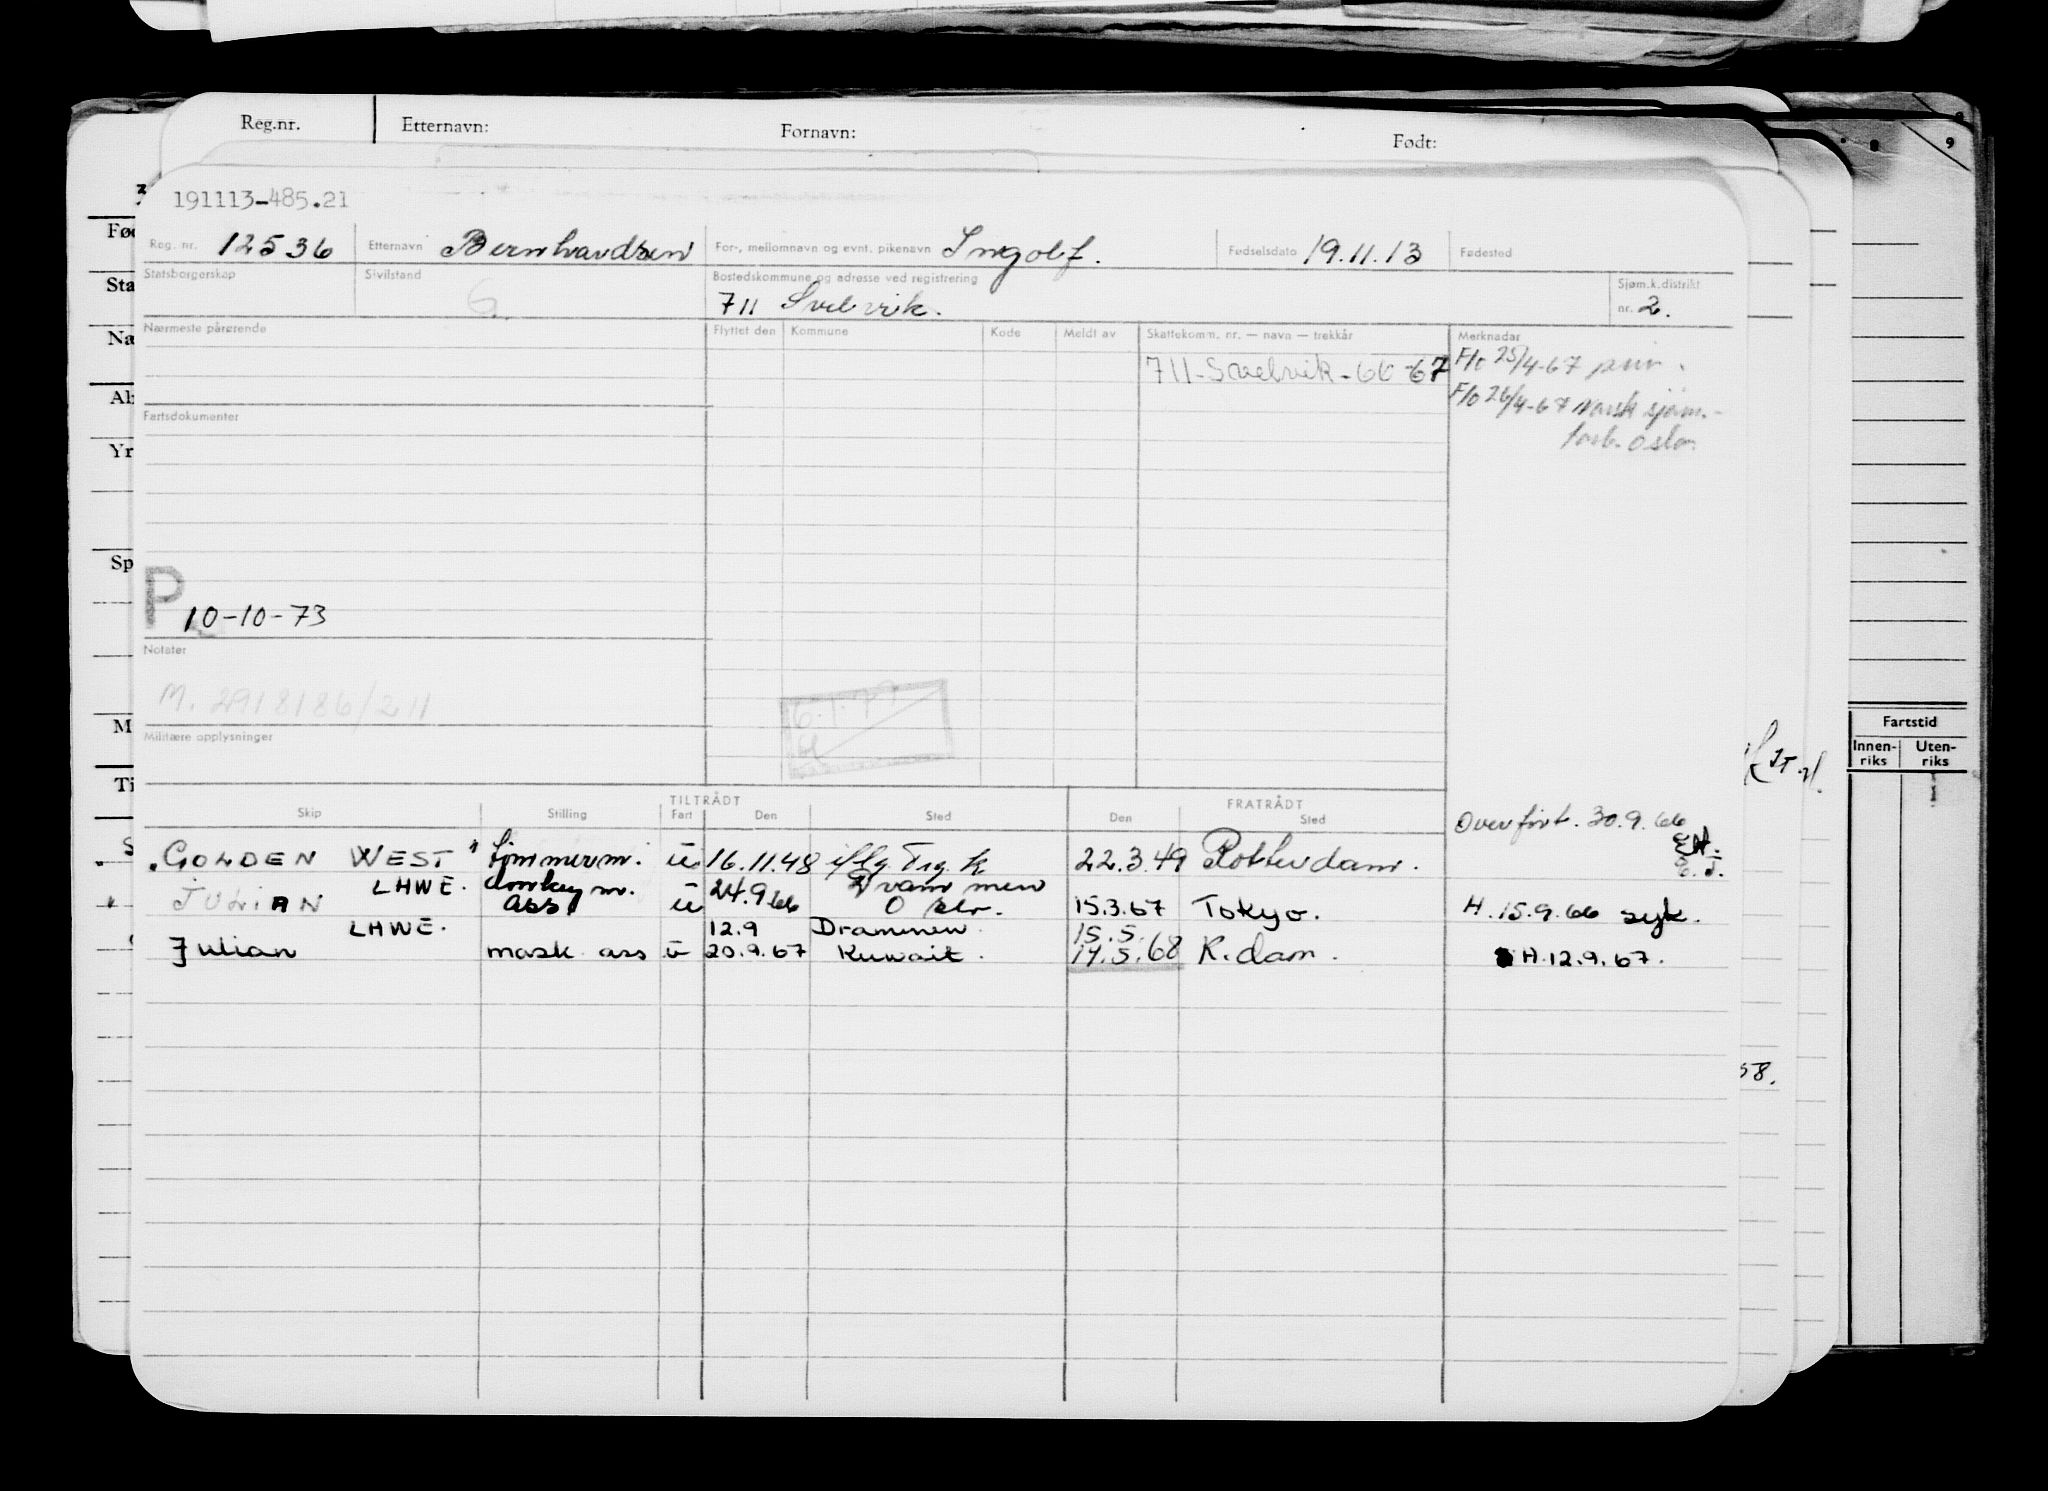 Reg.nr. Etternavn: Fornavn: Født:
9
191113-485.21
Reg. nr. 12536 Etternavn Bernhardsen For-, mellomnavn og evnt. pikenavn Ingolf. Fødselsdato 19.11.13 Fødested
Statsborgerskap Sivilstand G. Bostedskommune og adresse ved registrering 711 Svelvik. Sjøm.k.distrikt nr. 2.
Nærmeste pårørende Flyttet den Kommune Kode Meldt av Skattekomm. nr. — navn — trekkår Merknadar
711-Svelvik-66-67 F/o 25/4-67
F/o 26/4-67 Norsk sjøm.-
forb. Oslo.
Fartsdokumenter
P 10-10-73
Notater
M. 2918186/211
6.1.77
Militære opplysninger
TILTRÅDT FRATRÅDT
Skip Stilling Fart Den Sted Den Sted
Overført. 30.9.66
GOLDEN WEST tømmerm. u 16.11.48 iflg. Trg. k Drammen 22.3.49 Rotterdam.
E.J.
JULIAN LHWE. donkeym. ass u 24.9.66 Oslo. 15.3.67 Tokyo. H. 15.9.66 syk.
LHWE. 12.9 Drammen. 15.5.
Julian mask. ass u 20.9.67 Kuwait. 14.5.68 R.dam. H.12.9.67.
Fartstid
Innen-riks Uten-riks
58.